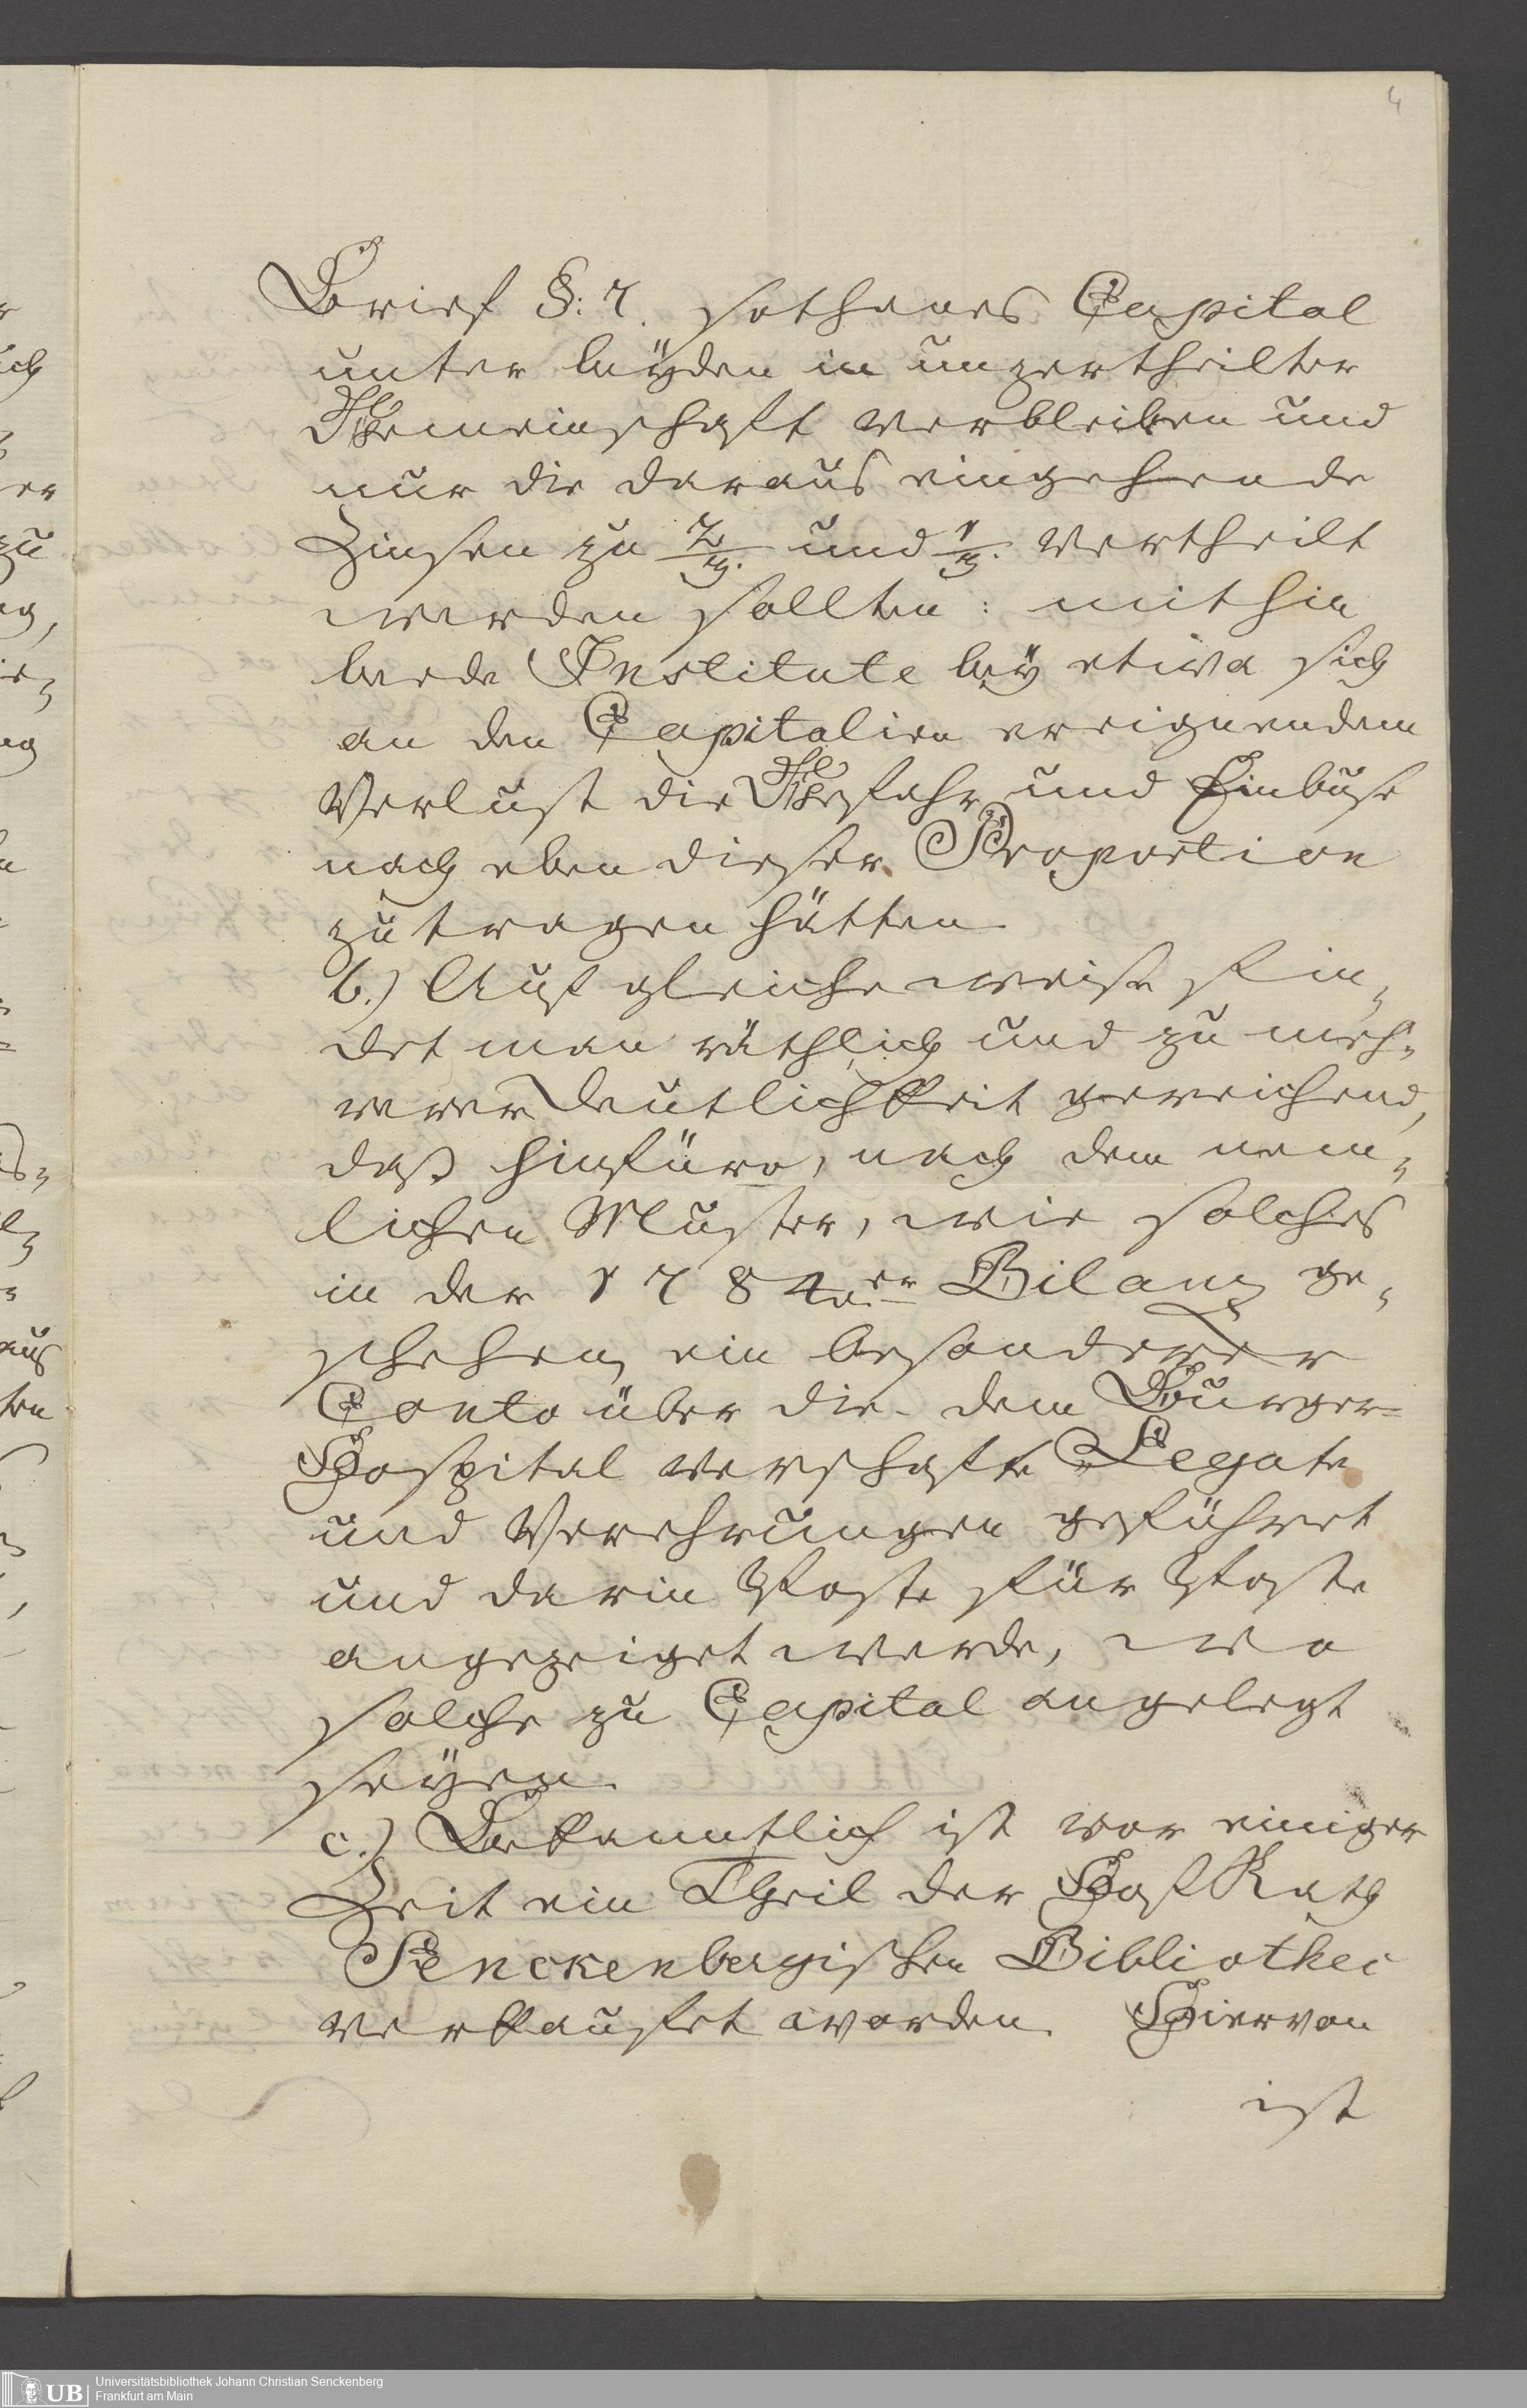 4
Brief §: 7. sothanes Capital
unter beÿden in unzertheilter
Gemeinschaft verbleiben und
nur die daraus eingehende
Zinsen zu 2/3. und 1/3. vertheilt
werden sollten: mithin
beede Institute beÿ etwa sich
an den Capitalien ereignendem
Verlust die Gefahr und Einbuse
nach eben dieser Proportion
zu tragen hätten.
b.) Auf gleiche weise fin-
det man räthlich und zu meh-
rerer Deutlichkeit gereichend,
daß hinfüro, nach dem nem-
lichen Muster, wie solches
in der 1784er Bilanz ge-
schehen, ein besonderer
Conto über die dem Burger-
Hospital verschafte Legate
und Verehrungen geführet
und darin Poste für Poste
angezeiget werde, wo
solche zu Capital angelegt
seÿen.
c.) Bekanntlich ist vor einiger
Zeit ein Theil der Hof Rath
Senckenbergischen Bibliothec
verkaufet worden. Hiervon
ist
UB
Universitätsbibliothek Johann Christian Senckenberg
Frankfurt am Main